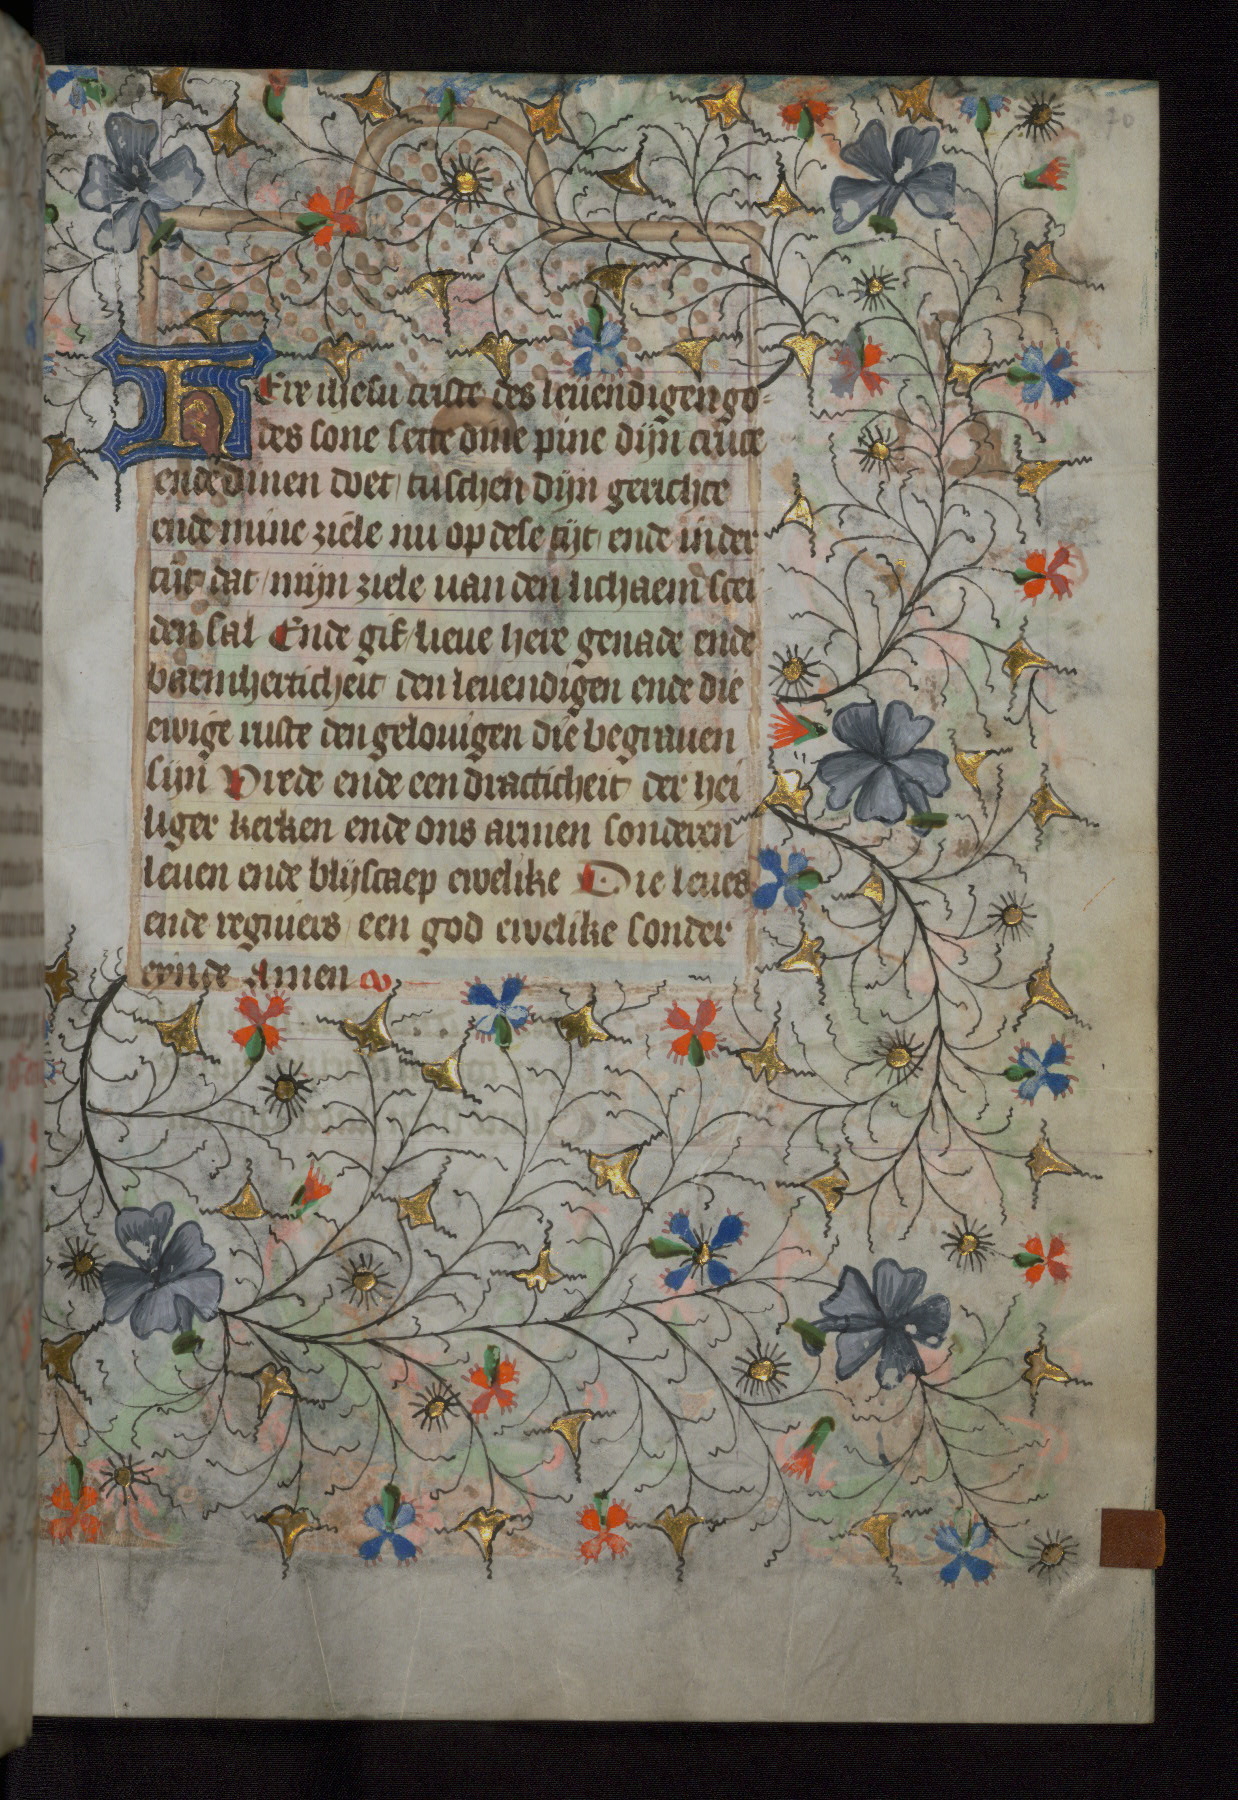 70
HEre ihesu criste des leuendigen go-
des sone sette dine pine dijn cruce
ende dinen doet / tuschen dijn gerichte
ende mine ziele nu op dese tijt / ende in der
tijt dat / mijn ziele uan den lichaem scei
den sal Ende gif / lieue here genade ende
barmherticheit den leuendigen ende die
ewige ruste den gelouigen die begrauen
sijn Vrede ende eendracticheit der hei
liger kerken ende ons armen sonderen
leuen ende blijscaep ewelike Die leues
ende regniers / een god ewelike sonder
eynde Amen